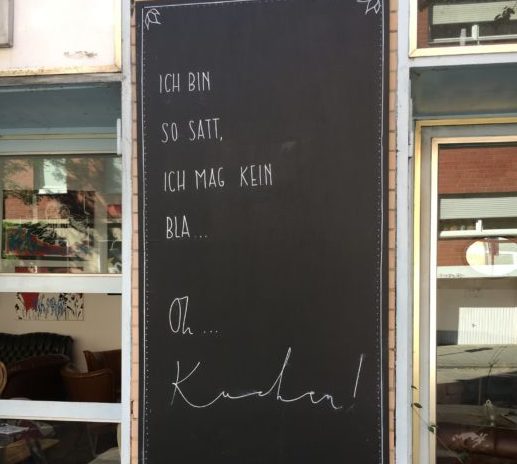 ICH BIN
SO SATT,
ICH MAG KEIN
BLA...
Oh...
Kuchen!